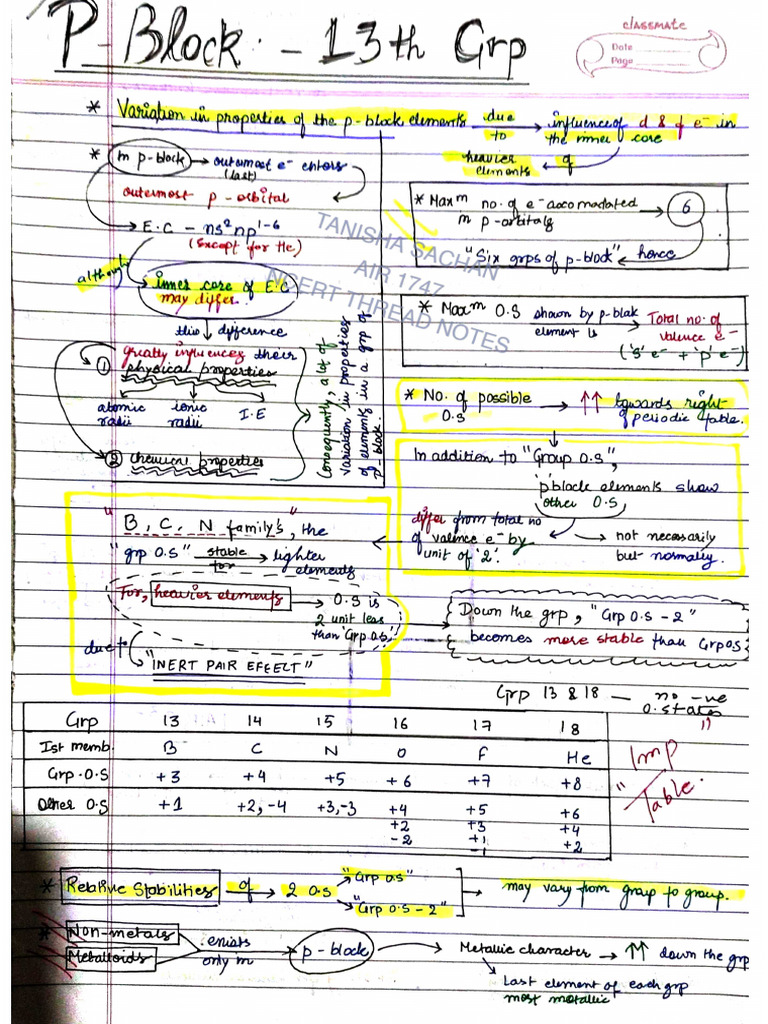 P-Block - 13th Grp
classmate
Date
Page
* Variation in properties of the p-block elements due to influence of d & f e⁻ in the inner core of heavier elements
* In p-block → outermost e⁻ enters (last)
outermost p-orbital
→ E.C - ns²np¹⁻⁶
(Except for He)
although
inner core of E.C
may differ.
this difference
① greatly influences their
physical properties
atomic radii
ionic radii
I.E
② chemical properties
Consequently, a lot of
variation in properties
of elements in a grp of
p-block.
* Maxᵐ no. of e⁻ accomodated → 6
in p-orbitals
"Six grps of p-block" hence
* Maxᵐ O.S shown by p-blak → Total no. of
element is valence e⁻
('s' e⁻ + 'p' e⁻)
* No. of possible → ↑↑ towards right
O.S of periodic table.
In addition to "Group O.S",
'p' block elements show
other O.S
differ from total no
of valence e⁻ by
unit of '2'.
not necessarily
but normally.
"B, C, N family's", the
"grp O.S" stable for → lighter
elements
For, heavier elements → O.S is
2 unit less
than 'Grp O.S'
due to
"INERT PAIR EFEECT"
Down the grp, "Grp O.S - 2"
becomes more stable than Grp O.S
Grp 13 & 18 — no -ve
O. states
Grp 13 14 15 16 17 18
Ist memb. B C N O F He
Grp. O.S +3 +4 +5 +6 +7 +8
Other O.S +1 +2, -4 +3, -3 +4 +5 +6
+2 +3 +4
-2 +1 +2
-1
"Imp
Table."
* Relative Stabilities of → 2 O.S
"Grp O.S"
"Grp O.S - 2"
→ may vary from group to group.
* Non-metals
Metalloids
exists
only in
p-block
Metallic character → ↑↑ down the grp
Last element of each grp
most metallic
TANISHA SACHAN
AIR 1747
NSERT THREAD NOTES